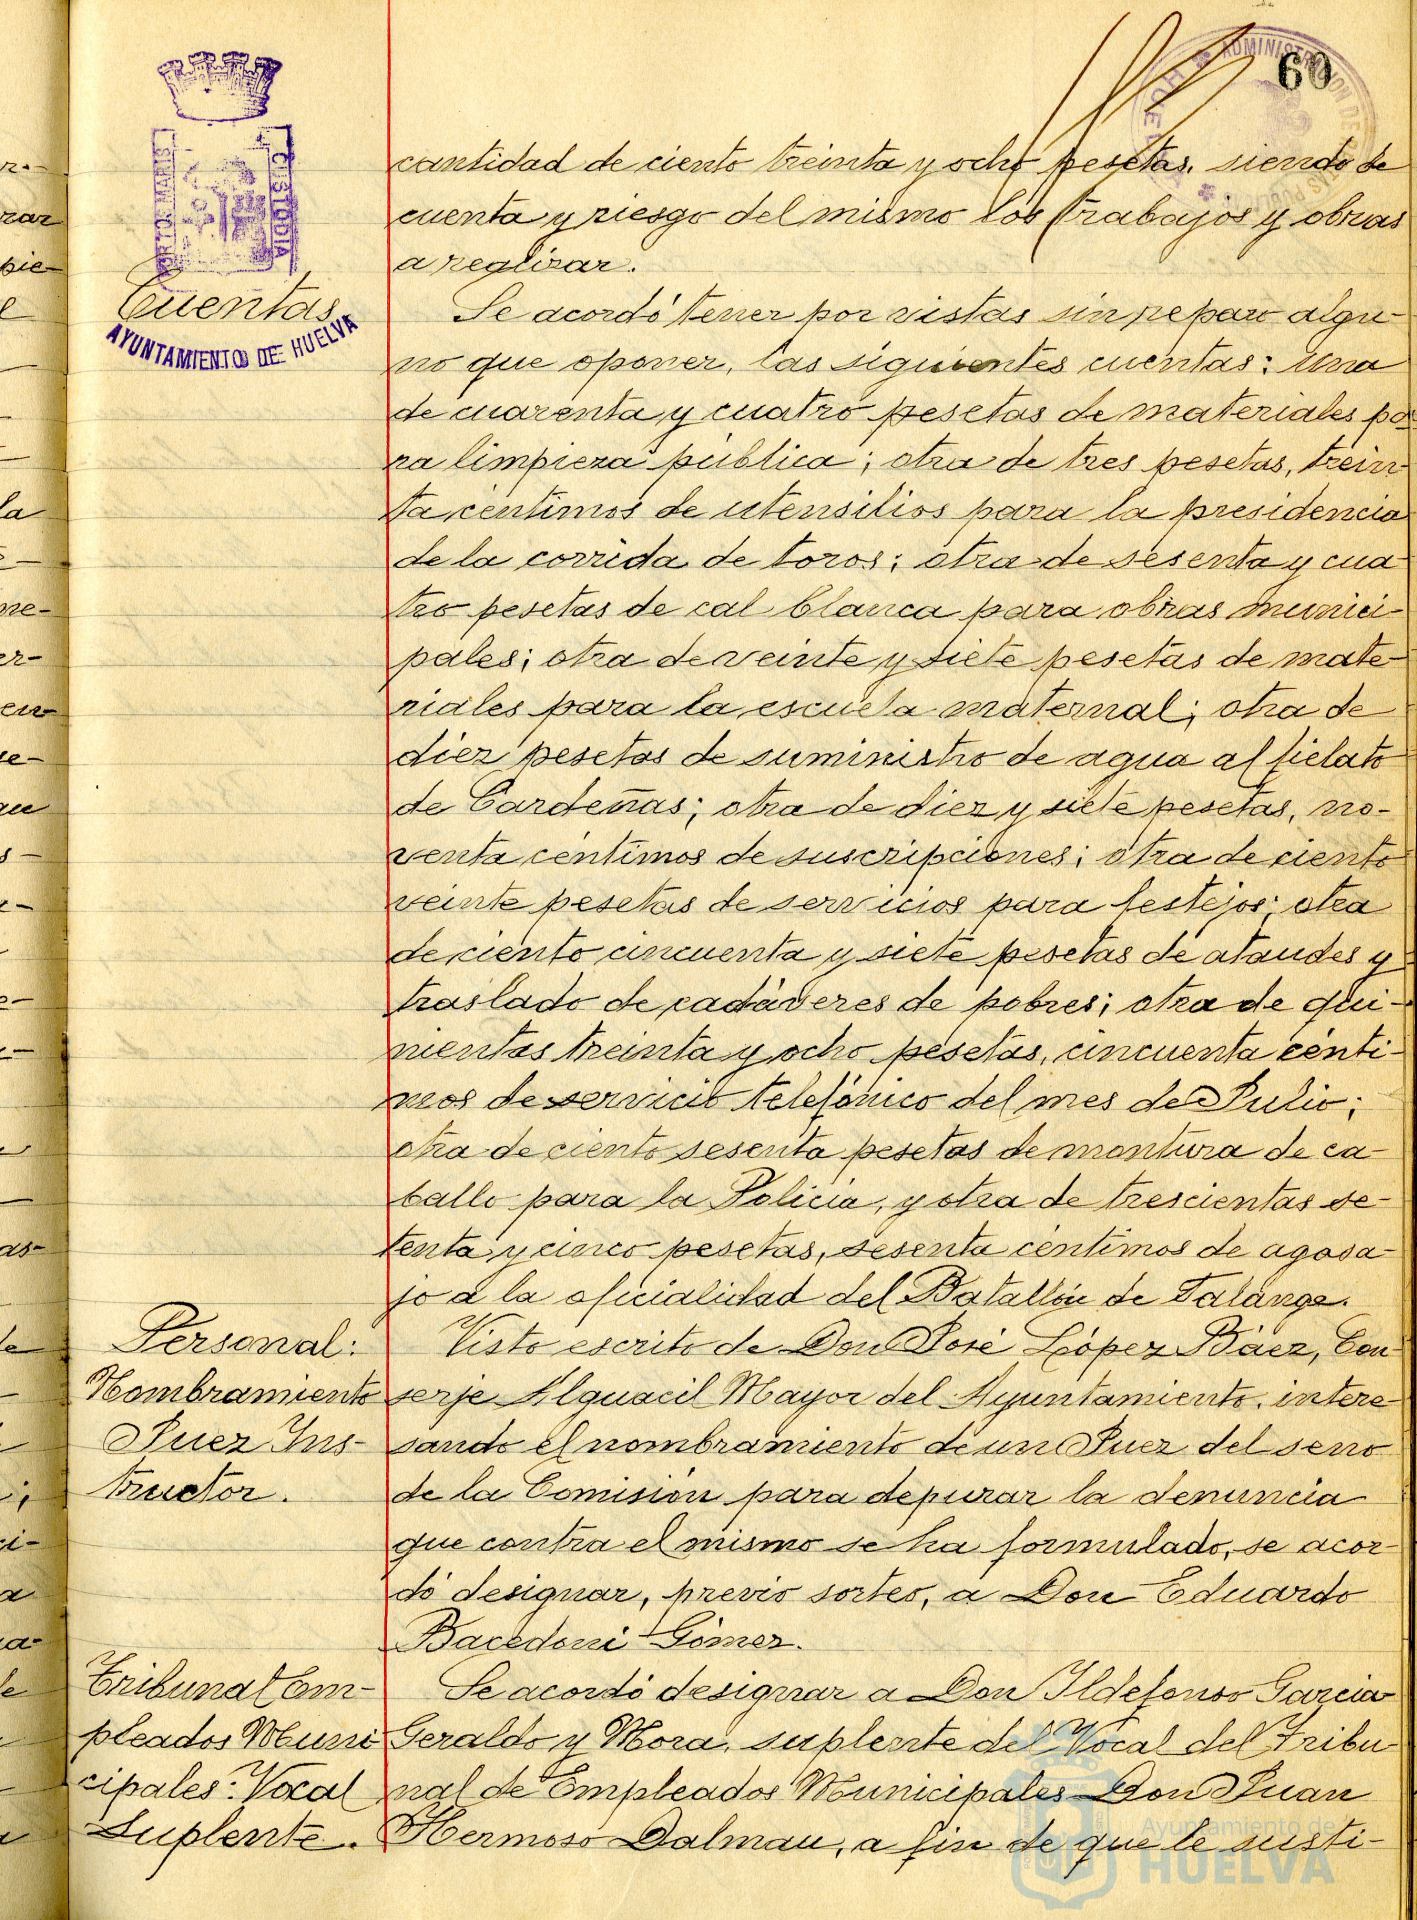 60
ADMINISTRACION DE
HUELVA
PORTO MARIS
CUSTODIA
AYUNTAMIENTO DE HUELVA
cantidad de ciento treinta y ocho pesetas, siendo de
cuenta y riesgo del mismo los trabajos y obras
a realizar.
Cuentas
Se acordó tener por vistas sin reparo algu-
no que oponer, las siguientes cuentas: una
de cuarenta y cuatro pesetas de materiales pa-
ra limpieza pública; otra de tres pesetas, trein-
ta céntimos de utensilios para la presidencia
de la corrida de toros; otra de sesenta y cua-
tro pesetas de cal blanca para obras munici-
pales; otra de veinte y siete pesetas de mate-
riales para la escuela maternal; otra de
diez pesetas de suministro de agua al fielato
de Cardeñas; otra de diez y siete pesetas, no-
venta céntimos de suscripciones; otra de ciento
veinte pesetas de servicios para festejos; otra
de ciento cincuenta y siete pesetas de ataudes y
traslado de cadáveres de pobres; otra de qui-
nientas treinta y ocho pesetas, cincuenta cénti-
mos de servicio telefónico del mes de Julio;
otra de ciento sesenta pesetas de montura de ca-
ballo para la Policía, y otra de trescientas se-
tenta y cinco pesetas, sesenta céntimos de agasa-
jo a la oficialidad del Batallón de Falange.
Personal:
Nombramiento
Juez Ins-
tructor.
Visto escrito de Don José López Báez, Con-
serje Alguacil Mayor del Ayuntamiento, intere-
sando el nombramiento de un Juez del seno
de la Comisión para depurar la denuncia
que contra el mismo se ha formulado, se acor-
dó designar, previo sorteo, a Don Eduardo
Bacedoni Gómez.
Tribunal Em-
pleados Muni
cipales: Vocal
Suplente.
Se acordó designar a Don Ildefonso García
Geraldo y Mora, suplente del Vocal del Tribu-
nal de Empleados Municipales Don Juan
Hermoso Dalmau, a fin de que le susti-
Ayuntamiento de
HUELVA